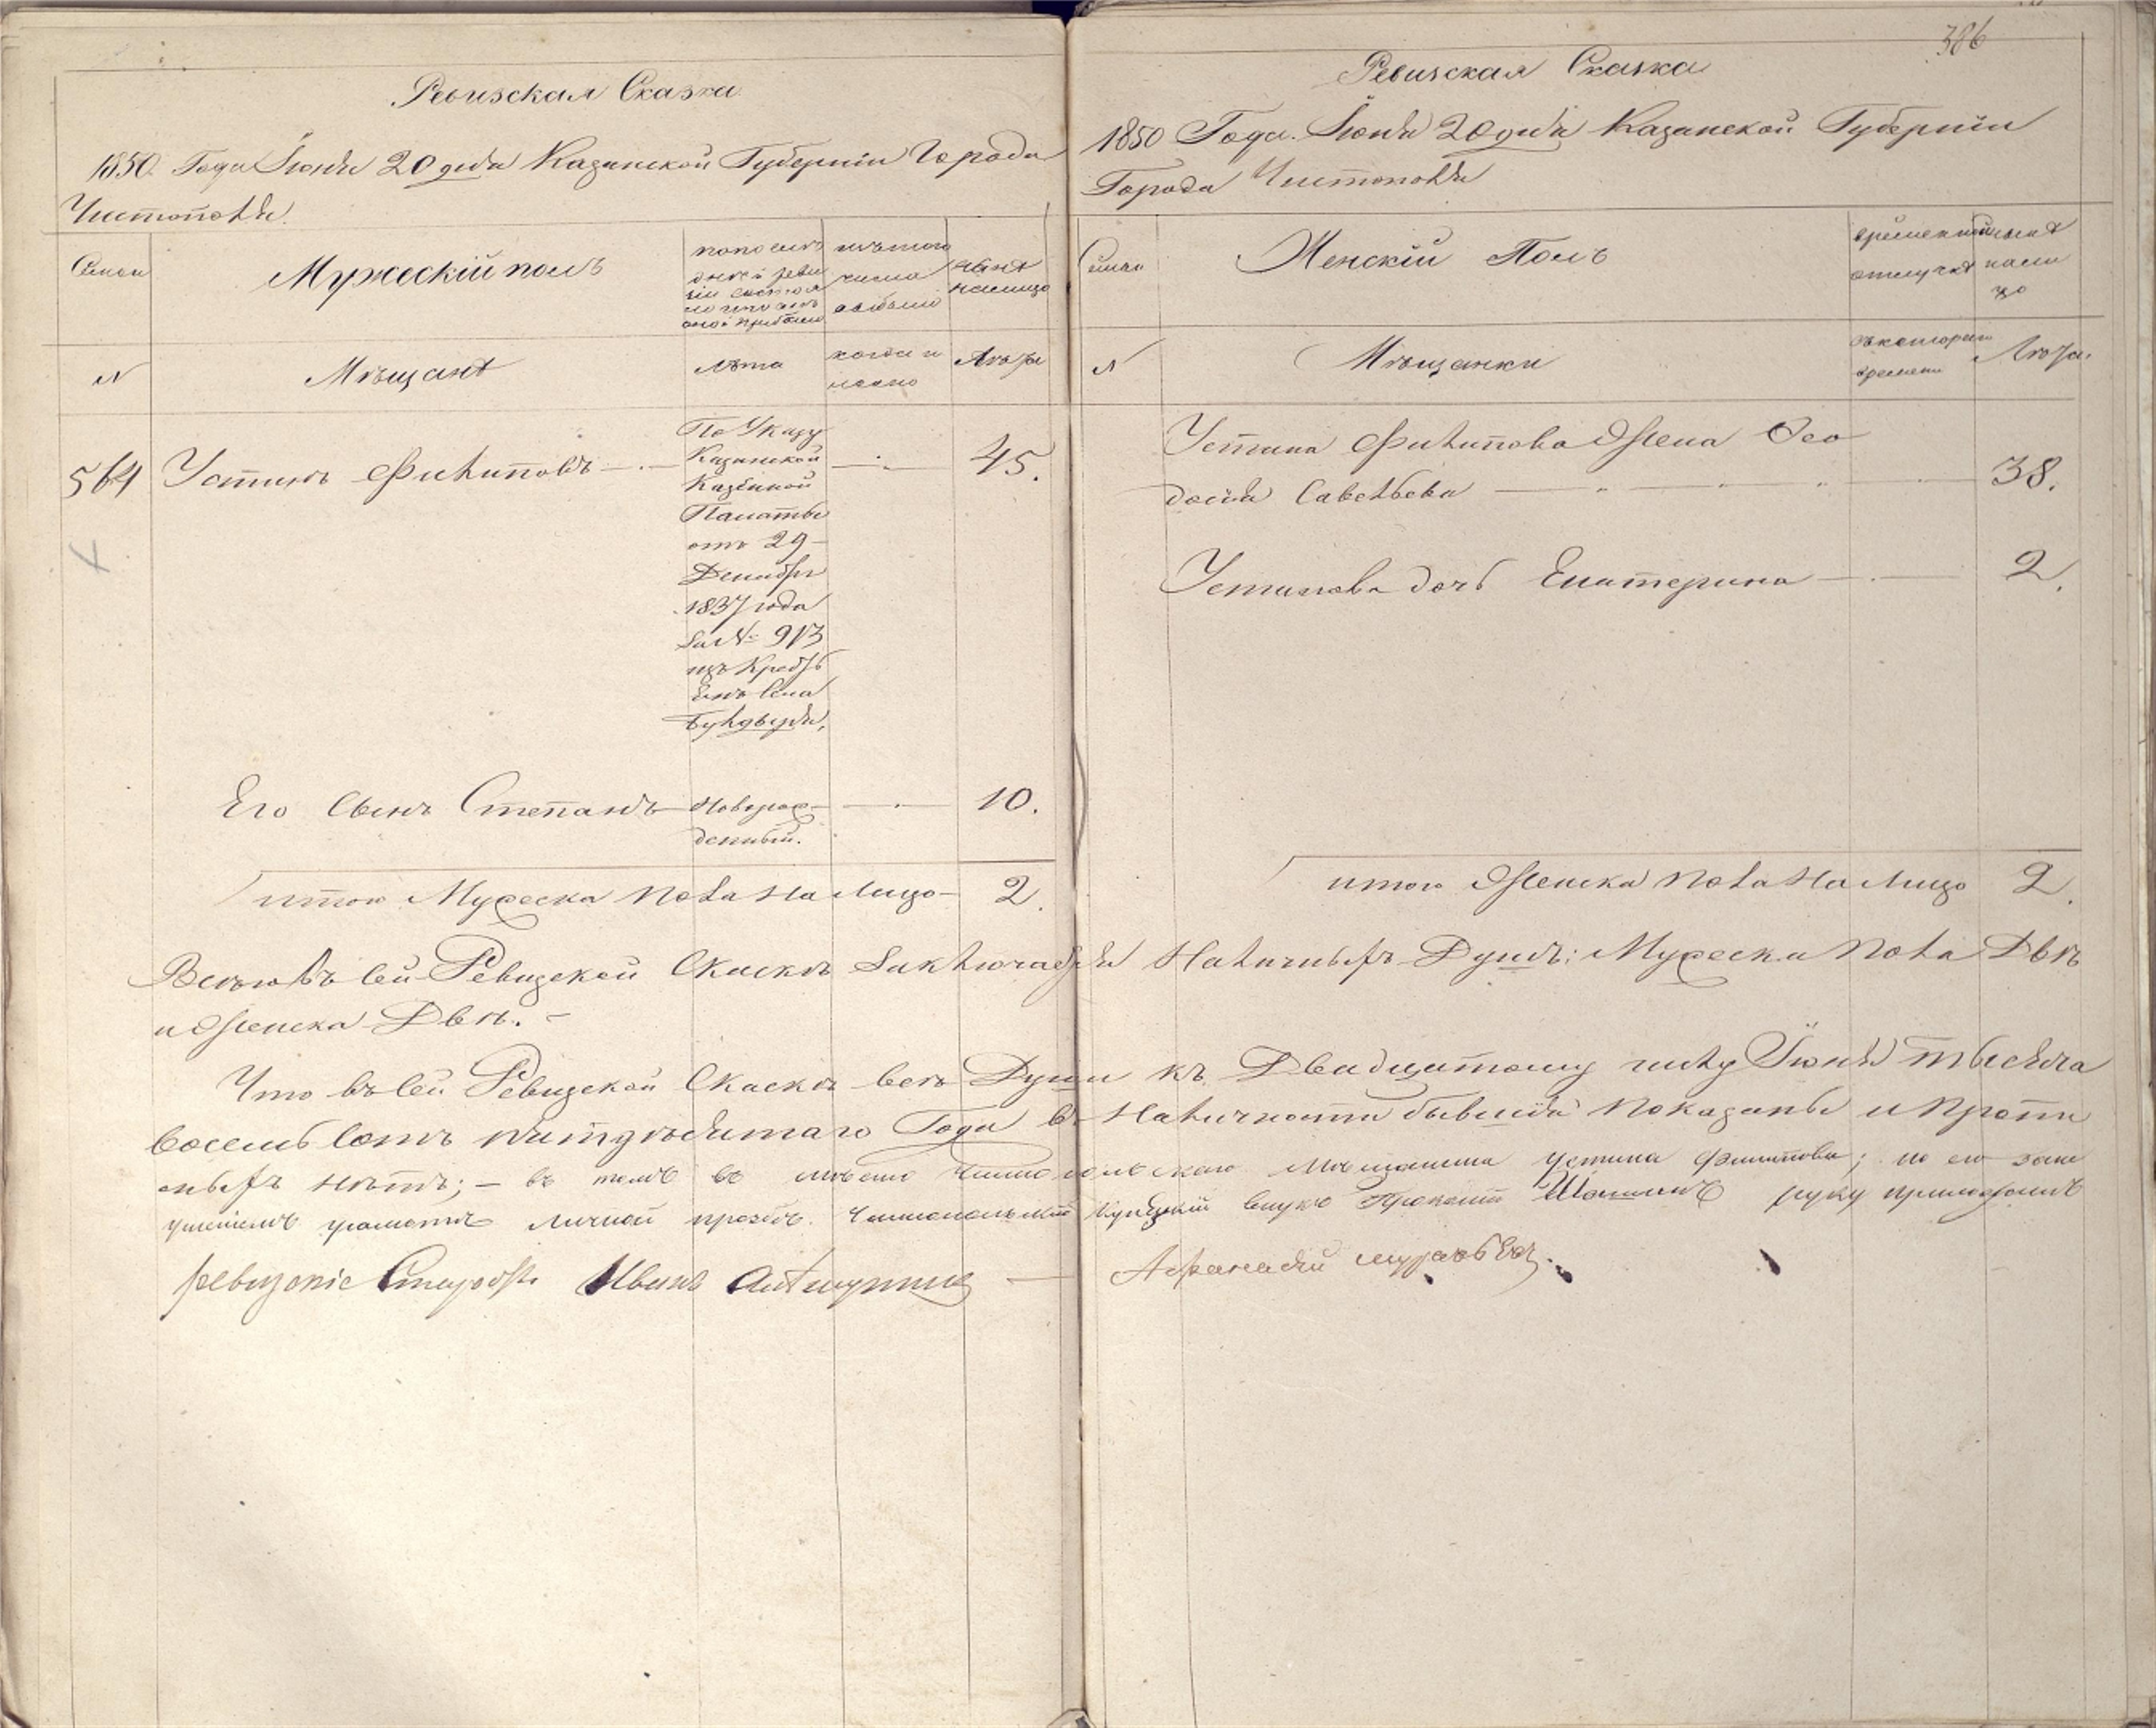 Ревизская Сказка
1850 Года Іюня 20 дня Казанской Губерніи Города
Чистополя
Семьи
Мужескій полъ
по послѣ
дней реви
зіи состоя
ло или послѣ
оной прибыло
изъ того
числа
выбыло
нынѣ
налицо
№
Мѣщанѣ
Лѣта
когда и
имянно
Лѣта
564 Устинъ Филиповъ 45.
По Указу
Казанской
Казенной
Палаты
отъ 29
Декабря
1837 года
За № 913
изъ Кресть
Енъ Села
Булдыря,
Его Сынъ Степанъ 10.
Новорож-
денный.
итого Мужеска пола На Лицо 2.
386
Ревизская Сказка
1850 Года. Іюня 20 дня Казанской Губерніи
Города Чистополя
Семьи
Женскій Полъ
временной
отлучкѣ
нынѣ
нали
цо
№
Мѣщанки
съ котораго
времени
Лѣта.
Устина Филипова Жена Фео
досія Савельева 38.
Устинова дочь Екатерина 2.
итого Женска Пола На Лицо 2.
Всего въ сей Ревизской Скаскѣ Заключается Наличныхъ Душъ: Мужеска Пола Двѣ
и Женска Двѣ. -
Что въ сей Ревизской Скаскѣ всѣ Души къ Двадцатому числу Іюня тысяча
восемь сотъ пятидесятаго Года въ Наличности бывшія Показаны и Пропи
сныхъ нѣтъ; - въ томъ въ мѣсто Чистопольскаго Мѣщанина Устина Филипова; по его за не
умѣніемъ грамотѣ личной прозбѣ Чистопольскій Купецкій внукъ руку приложилъ
Иванъ
Афанасій